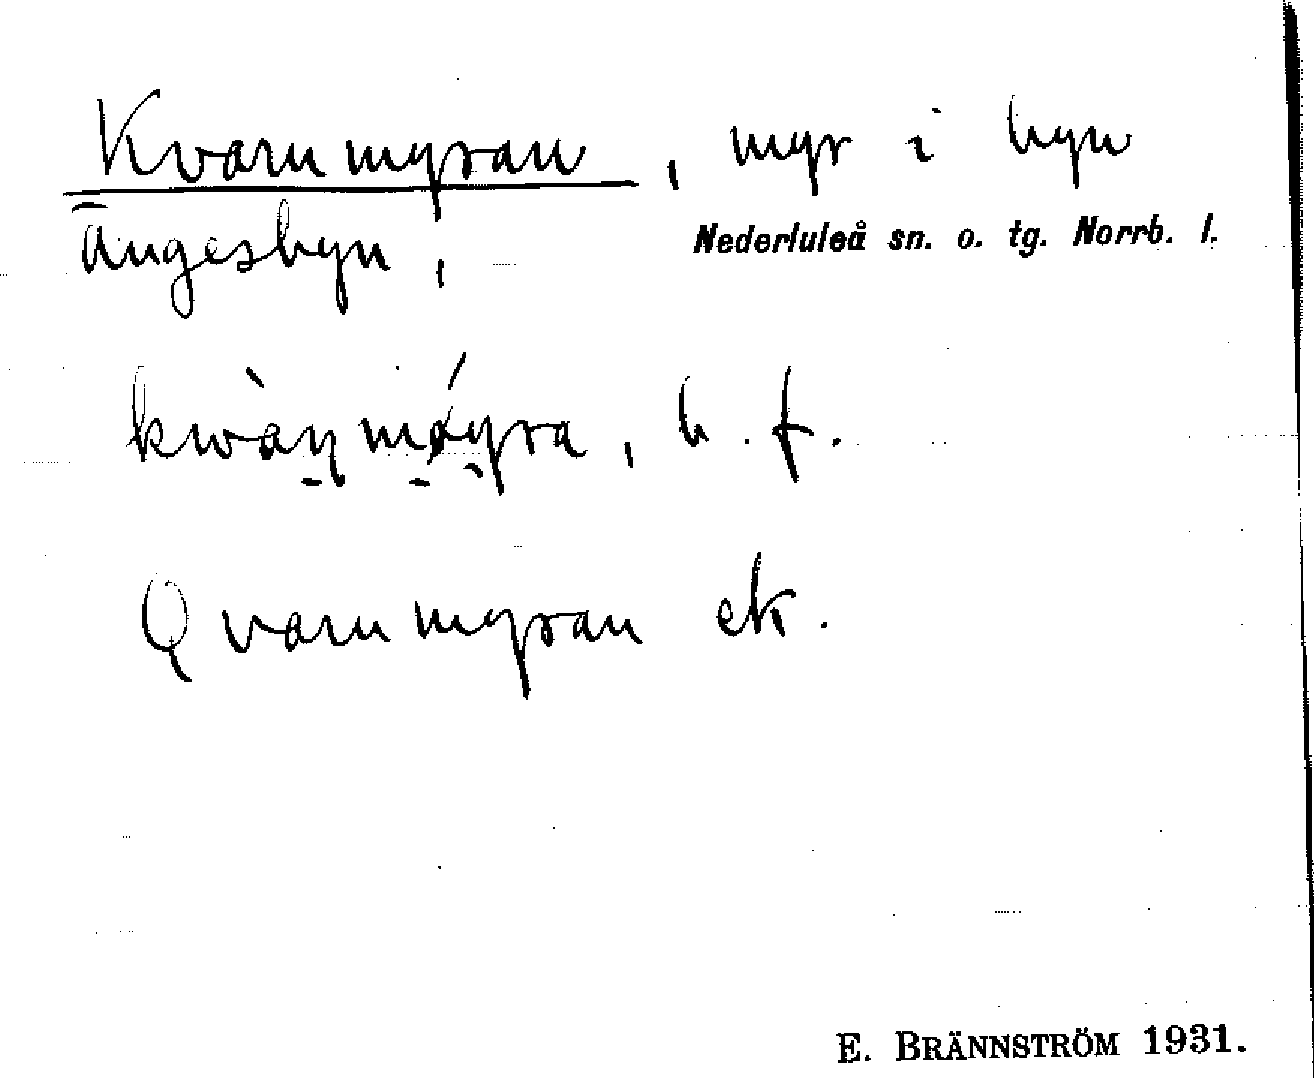 Kvarnmyran, myr i byn
Ängesbyn,
Nederluleå sn. o. tg. Norrb. l.
kwàṇmǿyra, b. f.
Qvarnmyran ek.
E. BRÄNNSTRÖM 1931.